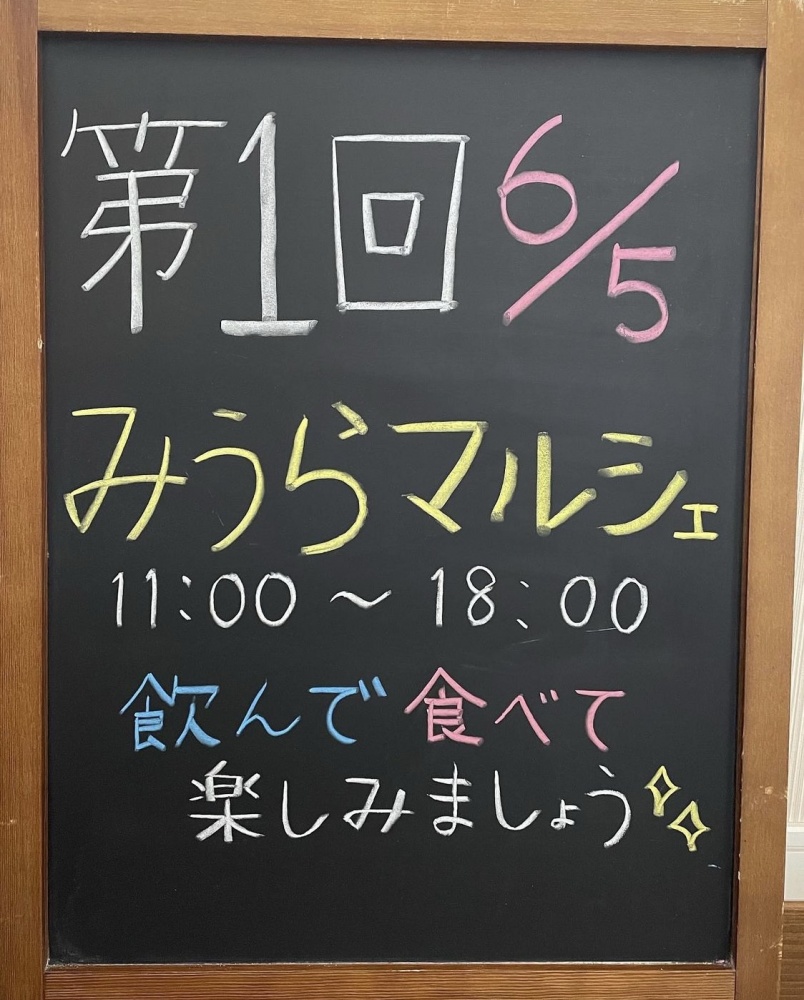 第1回 6/5
みうらマルシェ
11:00 〜 18:00
飲んで 食べて
楽しみましょう